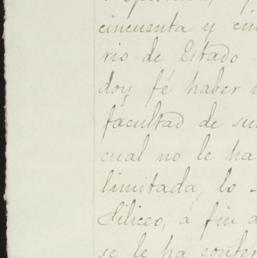 cincuenta y cin
rio de Estado
doy fé haber
facultad de su
cual no le ha
limitada, lo s
Siliceo, á fin d
se le há confer